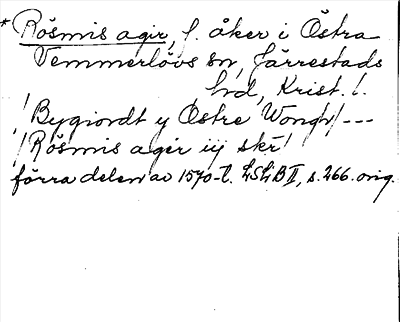 * Rösmis agir, f. åker i Östra
Vemmerlövs sn, Järrestads
hd, Krist. l.
/Bygiordt y Östre Wongh/ ---
/Rösmis ager iij skr/
förra delen av 1570-t. LSLB II, s. 266. orig.